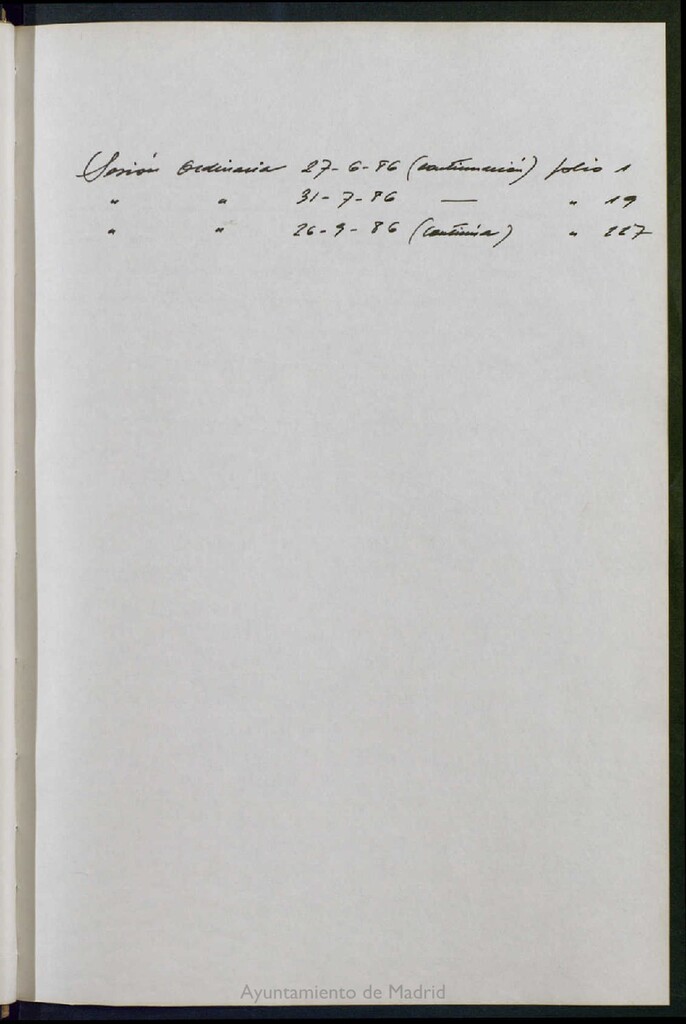 Sesión Ordinaria 27-6-86 (continuación) folio 1
" " 31-7-86 — " 19
" " 26-9-86 (continúa) " 227
Ayuntamiento de Madrid